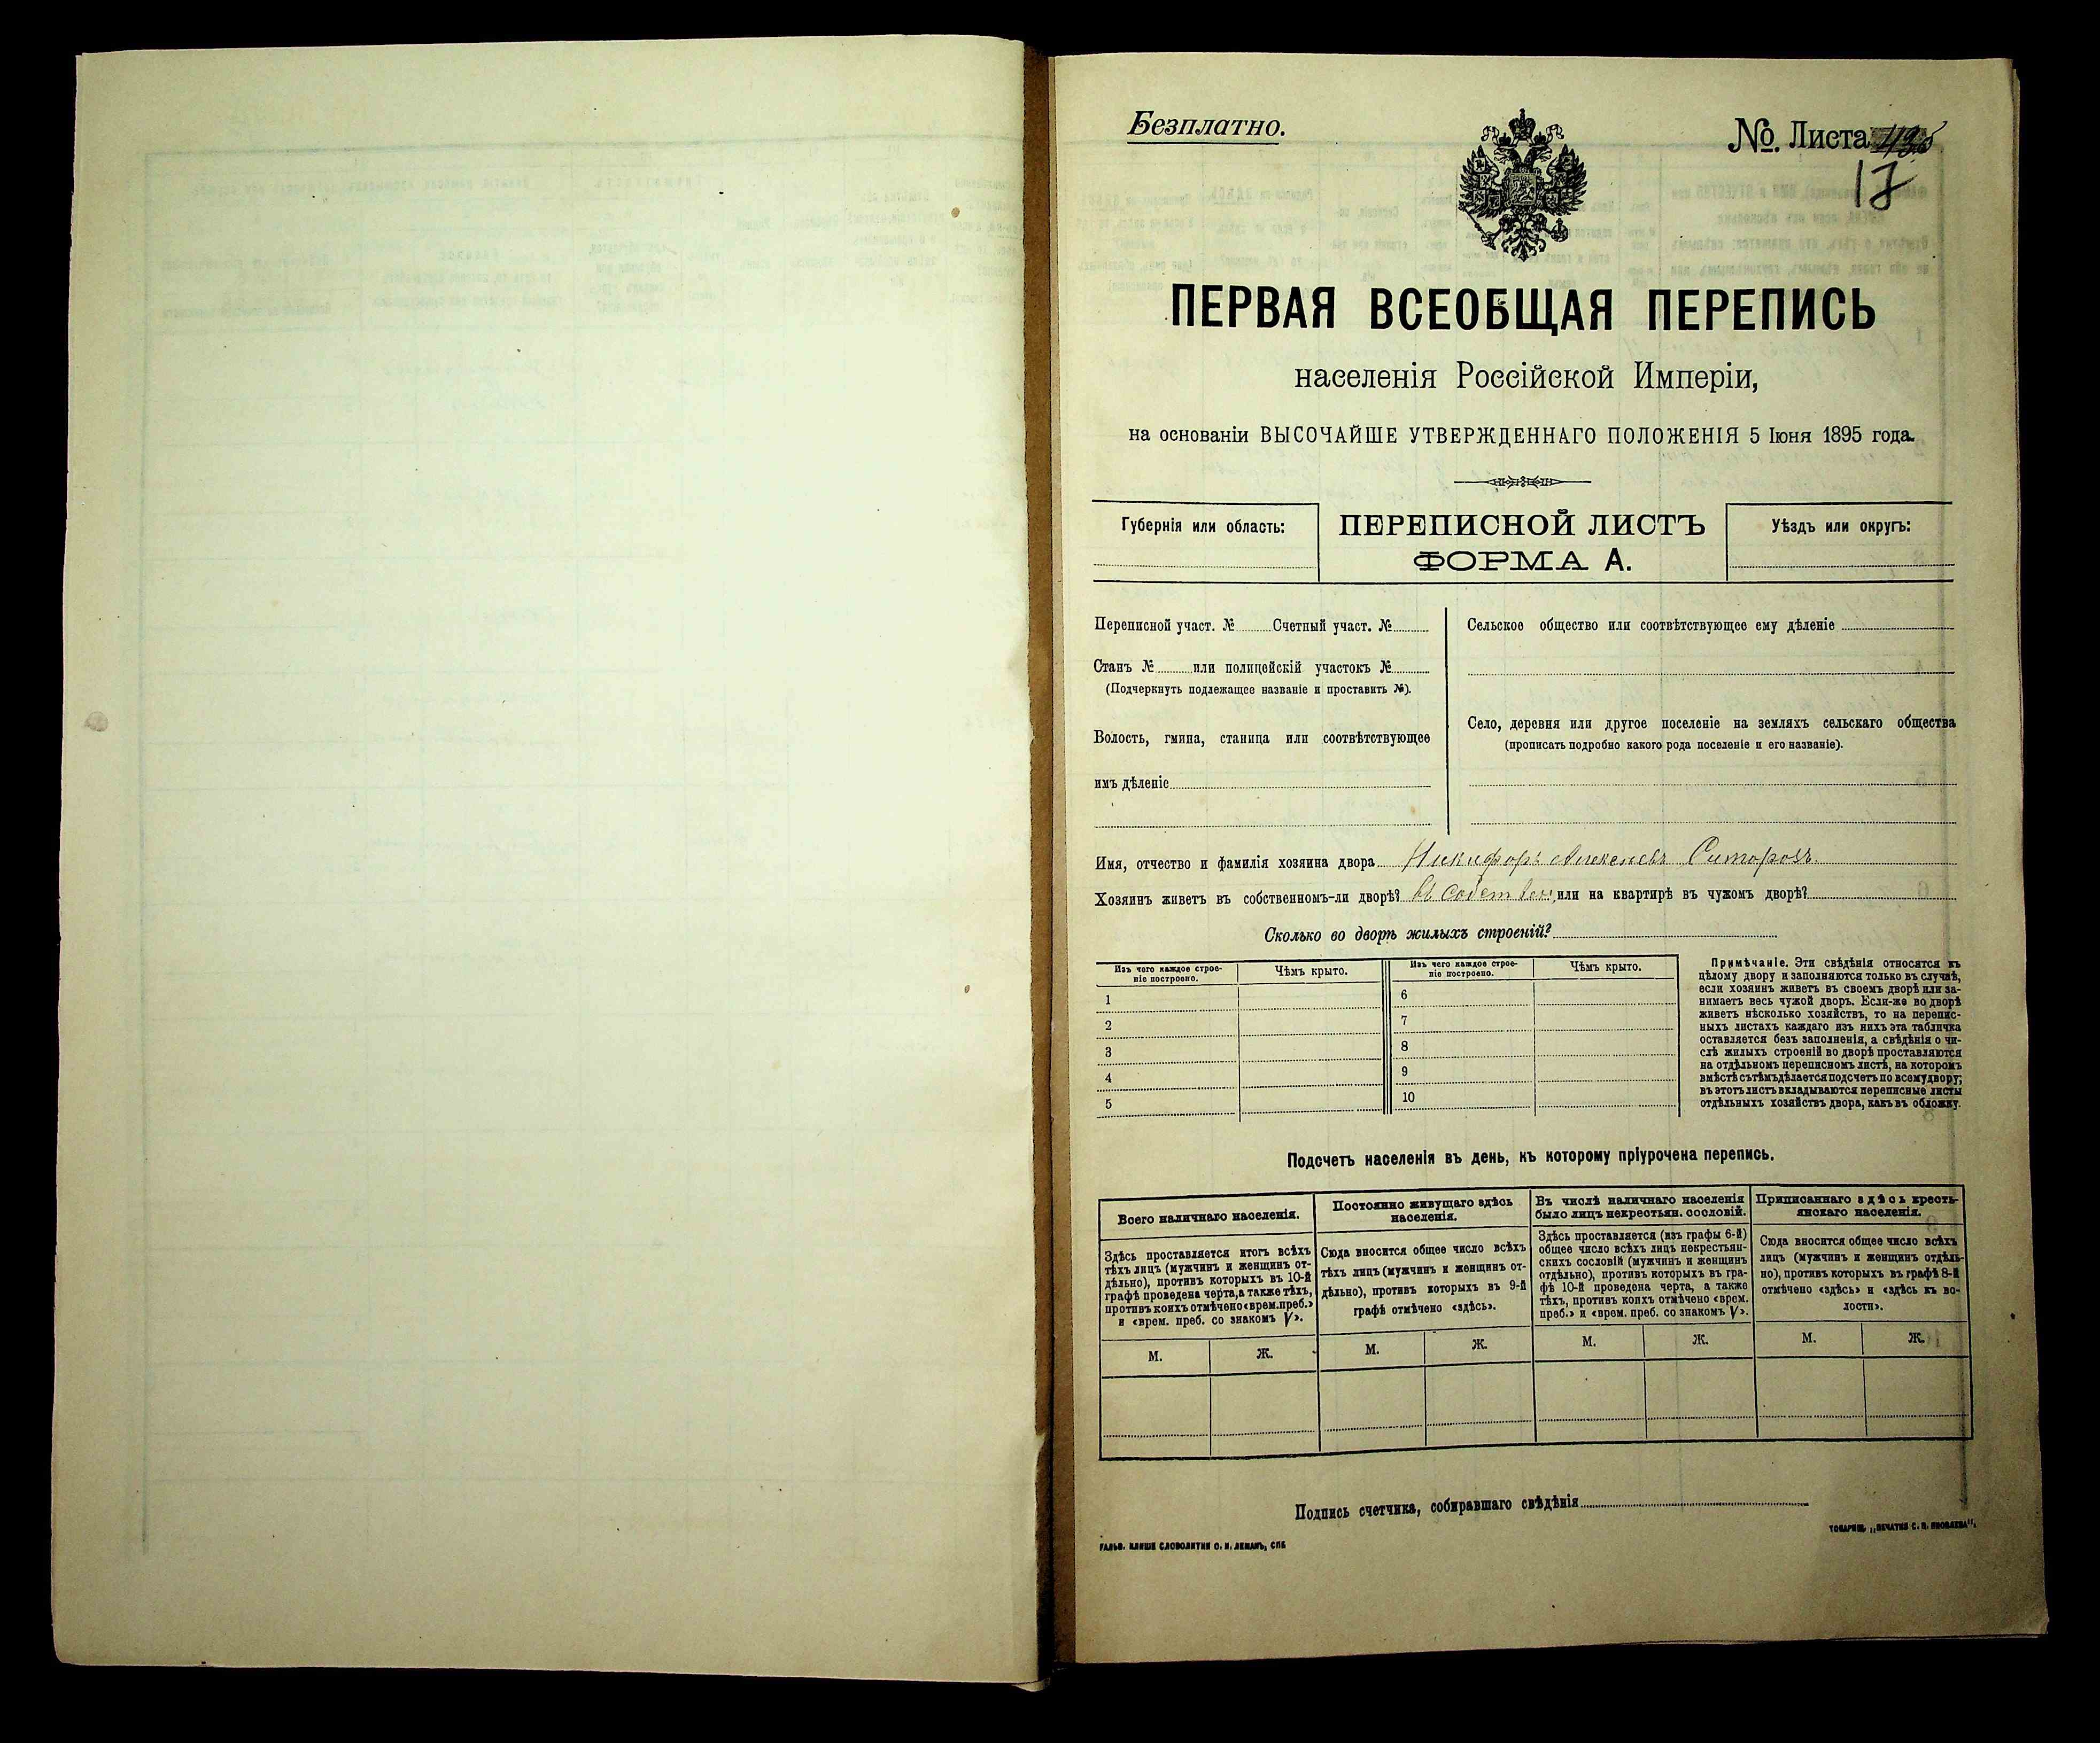 Безплатно.
№. Листа
17
ПЕРВАЯ ВСЕОБЩАЯ ПЕРЕПИСЬ
населенія Россійской Имперіи,
на основаніи ВЫСОЧАЙШЕ УТВЕРЖДЕННАГО ПОЛОЖЕНІЯ 5 Іюня 1895 года.
Губернія или область:
ПЕРЕПИСНОЙ ЛИСТЪ
ФОРМА А.
Уѣздъ или округъ:
Переписной участ. № Счетный участ. №
Станъ № или полицейскій участокъ №
(Подчеркнуть подлежащее названіе и проставить №).
Волость, гмина, станица или соотвѣтствующее
имъ дѣленіе
Сельское общество или соотвѣтствующее ему дѣленіе
Село, деревня или другое поселеніе на земляхъ сельскаго общества
(прописать подробно какого рода поселеніе и его названіе).
Имя, отчество и фамилія хозяина двора Никифоръ Алексѣевъ Ситоровъ
Хозяинъ живетъ въ собственномъ-ли дворѣ? въ собствен. или на квартирѣ въ чужомъ дворѣ?
Сколько во дворѣ жилыхъ строеній?
Изъ чего каждое строе-
ніе построено.
Чѣмъ крыто.
1
2
3
4
5
Изъ чего каждое строе-
ніе построено.
Чѣмъ крыто.
6
7
8
9
10
Примѣчаніе. Эти свѣдѣнія относятся къ
цѣлому двору и заполняются только въ случаѣ,
если хозяинъ живетъ въ своемъ дворѣ или за-
нимаетъ весь чужой дворъ. Если-же во дворѣ
живетъ нѣсколько хозяйствъ, то на перепис-
ныхъ листахъ каждаго изъ нихъ эта табличка
оставляется безъ заполненія, а свѣдѣнія о чи-
слѣ жилыхъ строеній во дворѣ проставляются
на отдѣльномъ переписномъ листѣ, на которомъ
вмѣстѣ съ тѣмъ дѣлается подсчетъ по всему двору;
въ этотъ листъ вкладываются переписные листы
отдѣльныхъ хозяйствъ двора, какъ въ обложку.
Подсчетъ населенія въ день, къ которому пріурочена перепись.
Всего наличнаго населенія.
Здѣсь проставляется итогъ всѣхъ
тѣхъ лицъ (мужчинъ и женщинъ от-
дѣльно), противъ которыхъ въ 10-й
графѣ проведена черта, а также тѣхъ,
противъ коихъ отмѣчено «врем. преб.»
и «врем. преб. со знакомъ V».
М. Ж.
Постоянно живущаго здѣсь
населенія.
Сюда вносится общее число всѣхъ
тѣхъ лицъ (мужчинъ и женщинъ от-
дѣльно), противъ которыхъ въ 9-й
графѣ отмѣчено «здѣсь».
М. Ж.
Въ числѣ наличнаго населенія
было лицъ некрестьян. сословій.
Здѣсь проставляется (изъ графы 6-й)
общее число всѣхъ лицъ некрестьян-
скихъ сословій (мужчинъ и женщинъ
отдѣльно), противъ которыхъ въ гра-
фѣ 10-й проведена черта, а также
тѣхъ, противъ коихъ отмѣчено «врем.
преб.» и «врем. преб. со знакомъ V».
М. Ж.
Приписаннаго здѣсь кресть-
янскаго населенія.
Сюда вносится общее число всѣхъ
лицъ (мужчинъ и женщинъ отдѣль-
но), противъ которыхъ въ графѣ 8-й
отмѣчено «здѣсь» и «здѣсь къ во-
лости».
М. Ж.
Подпись счетчика, собиравшаго свѣдѣнія
ГАЛЬВ. КЛИШЕ СЛОВОЛИТНИ О. И. ЛЕМАНЪ, СПБ
ТОВАРИЩ. „ПЕЧАТНЯ С. П. ЯКОВЛЕВА“.